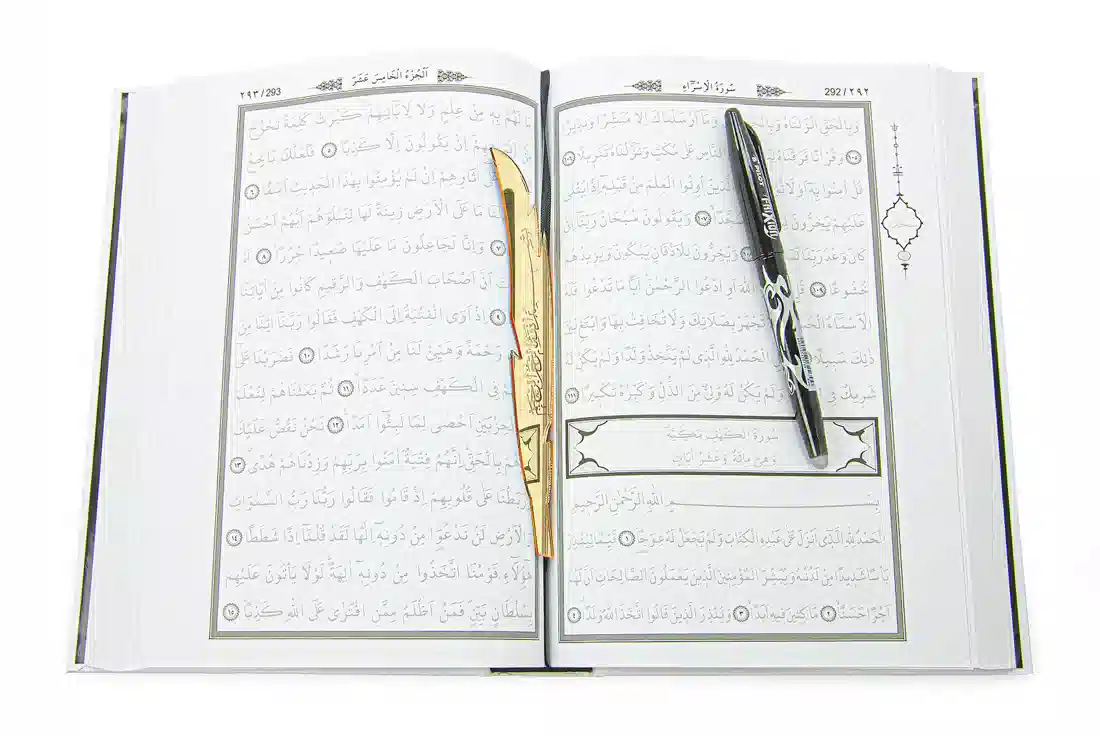 سُورَةُ الْإِسْرَاءِ
292/٢٩٢
وَبِالْحَقِّ أَنْزَلْنَاهُ وَمَا أَرْسَلْنَاكَ إِلَّا مُبَشِّرًا وَنَذِيرًا
١٠٥ وَقُرْآنًا فَرَقْنَاهُ النَّاسِ عَلَى مُكْثٍ وَنَزَّلْنَاهُ تَنْزِيلًا ١٠٦
قُلْ آمِنُوا بِهِ أَوْ لَا الَّذِينَ أُوتُوا الْعِلْمَ مِنْ قَبْلِهِ إِذَا يُتْلَى
عَلَيْهِمْ يَخِرُّونَ سُجَّدًا ١٠٧ وَيَقُولُونَ سُبْحَانَ رَبِّنَا إِنْ
كَانَ وَعْدُ رَبِّنَا وَيَخِرُّونَ لِلْأَذْقَانِ يَبْكُونَ وَيَزِيدُهُمْ
خُشُوعًا ١٠٩ اللَّهَ أَوِ ادْعُوا الرَّحْمَنَ أَيًّا مَا تَدْعُوا فَلَهُ
الْأَسْمَاءُ تَجْهَرْ بِصَلَاتِكَ وَلَا تُخَافِتْ بِهَا وَابْتَغِ بَيْنَ
ذَلِكَ سَبِيلًا الْحَمْدُ لِلَّهِ الَّذِي لَمْ يَتَّخِذْ وَلَدًا وَلَمْ يَكُنْ لَهُ
شَرِيكٌ فِي وَلَمْ يَكُنْ لَهُ وَلِيٌّ مِنَ الذُّلِّ وَكَبِّرْهُ تَكْبِيرًا ١١١
سُورَةُ الْكَهْفِ مَكِّيَّةٌ
وَهِيَ مِائَةٌ وَعَشْرُ آيَاتٍ
بِسْمِ اللَّهِ الرَّحْمَنِ الرَّحِيمِ
الْحَمْدُ لِلَّهِ الَّذِي أَنْزَلَ عَلَى عَبْدِهِ الْكِتَابَ وَلَمْ يَجْعَلْ لَهُ عِوَجًا ١ قَيِّمًا لِيُنْذِرَ
بَأْسًا شَدِيدًا مِنْ لَدُنْهُ وَيُبَشِّرَ الْمُؤْمِنِينَ الَّذِينَ يَعْمَلُونَ الصَّالِحَاتِ أَنَّ لَهُمْ
أَجْرًا حَسَنًا ٢ مَاكِثِينَ فِيهِ أَبَدًا ٣ وَيُنْذِرَ الَّذِينَ قَالُوا اتَّخَذَ اللَّهُ وَلَدًا ٤
PILOT FRIXION
اَلْجُزْءُ الْخَامِسَ عَشَرَ
٢٩٣/293
مَا لَهُمْ بِهِ مِنْ عِلْمٍ وَلَا لِآبَائِهِمْ كَبُرَتْ كَلِمَةً تَخْرُجُ
مِنْ إِنْ يَقُولُونَ إِلَّا كَذِبًا ٥ فَلَعَلَّكَ بَاخِعٌ
آثَارِهِمْ إِنْ لَمْ يُؤْمِنُوا بِهَذَا الْحَدِيثِ أَسَفًا ٦
مَا عَلَى الْأَرْضِ زِينَةً لَهَا لِنَبْلُوَهُمْ أَيُّهُمْ أَحْسَنُ
٧ وَإِنَّا لَجَاعِلُونَ مَا عَلَيْهَا صَعِيدًا جُرُزًا ٨ أَمْ
أَنَّ أَصْحَابَ الْكَهْفِ وَالرَّقِيمِ كَانُوا مِنْ آيَاتِنَا
٩ إِذْ أَوَى الْفِتْيَةُ إِلَى الْكَهْفِ فَقَالُوا رَبَّنَا آتِنَا مِنْ
رَحْمَةً وَهَيِّئْ لَنَا مِنْ أَمْرِنَا رَشَدًا ١٠ فَضَرَبْنَا عَلَى
فِي الْكَهْفِ سِنِينَ عَدَدًا ١١ ثُمَّ بَعَثْنَاهُمْ لِنَعْلَمَ
الْحِزْبَيْنِ أَحْصَى لِمَا لَبِثُوا أَمَدًا ١٢ نَحْنُ نَقُصُّ عَلَيْكَ
بِالْحَقِّ إِنَّهُمْ فِتْيَةٌ آمَنُوا بِرَبِّهِمْ وَزِدْنَاهُمْ هُدًى ١٣
وَرَبَطْنَا عَلَى قُلُوبِهِمْ إِذْ قَامُوا فَقَالُوا رَبُّنَا رَبُّ السَّمَوَاتِ
وَالْأَرْضِ لَنْ نَدْعُوَا مِنْ دُونِهِ إِلَهًا لَقَدْ قُلْنَا إِذًا شَطَطًا ١٤
هَؤُلَاءِ قَوْمُنَا اتَّخَذُوا مِنْ دُونِهِ آلِهَةً لَوْلَا يَأْتُونَ عَلَيْهِمْ
بِسُلْطَانٍ بَيِّنٍ فَمَنْ أَظْلَمُ مِمَّنِ افْتَرَى عَلَى اللَّهِ كَذِبًا ١٥